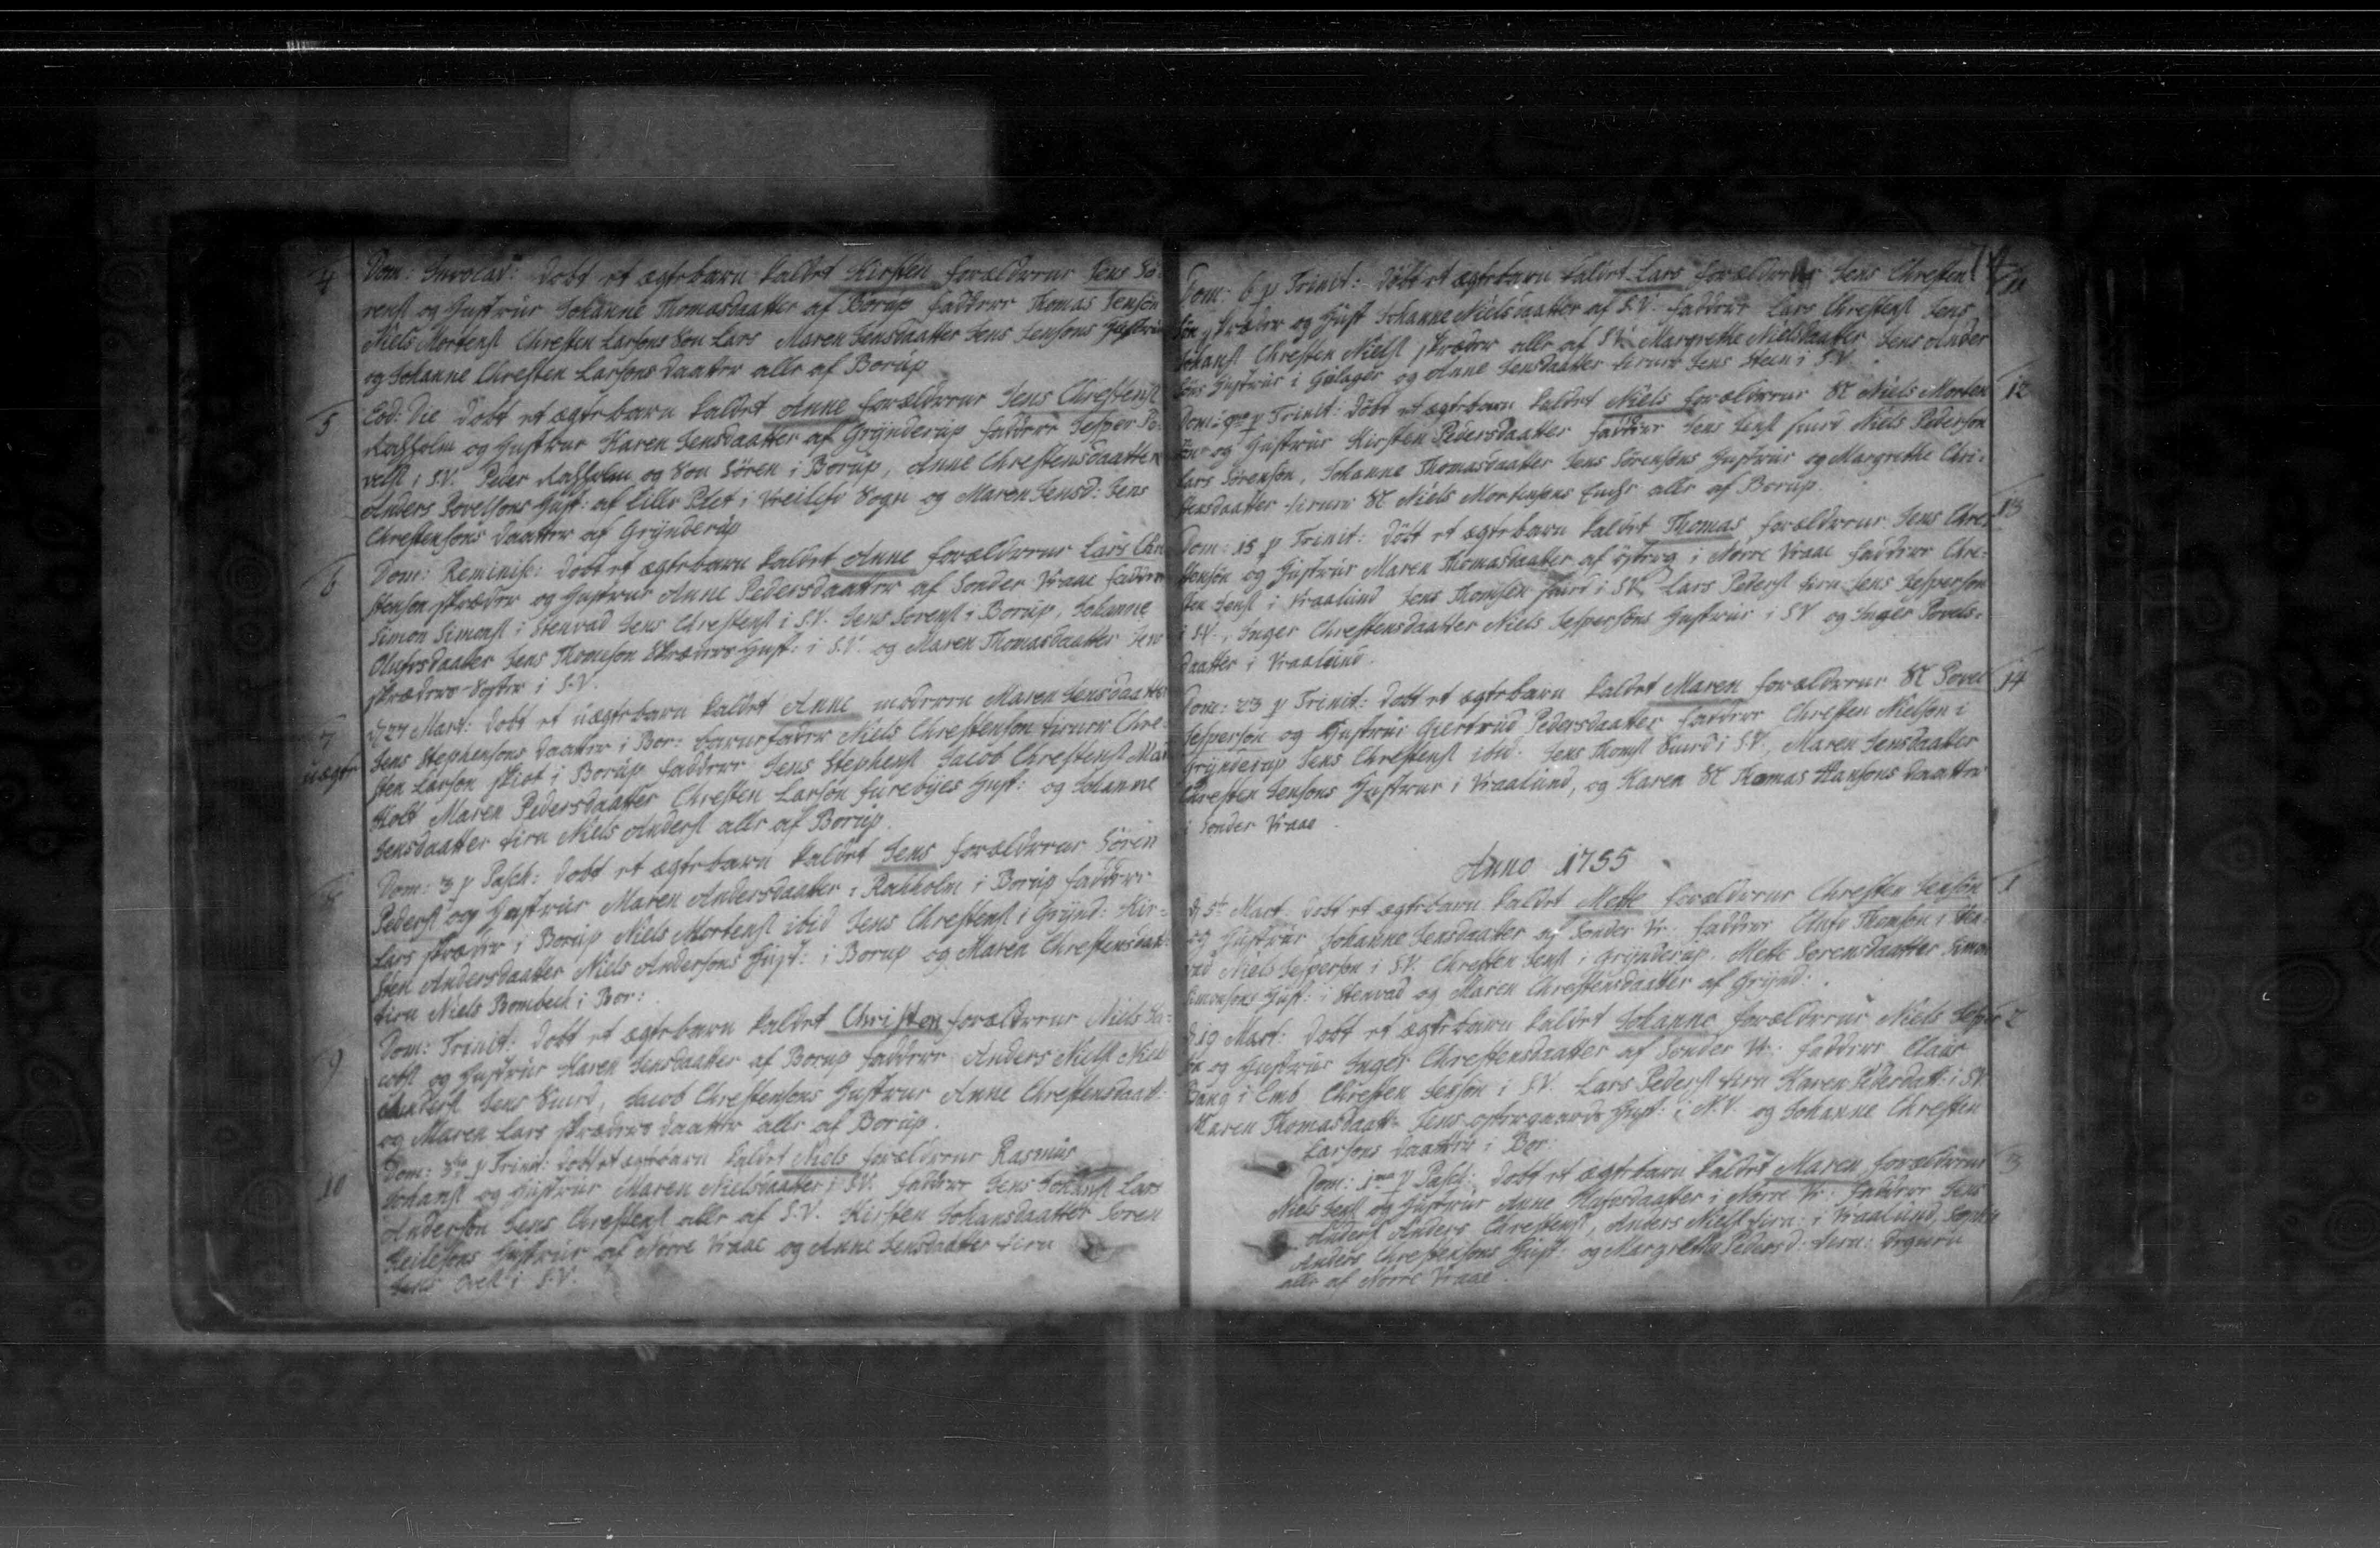 4
Dom: Invocav: døbt et ægte barn kaldet Kirsten forældrene Jens Sø-
rens: og Hustrue Johanne Thomasdaatter af Borup faddere Thomas Jensøn
Niels Mortens: Chresten Larsøns Søn Lars Maren Jensdaatter Jens Jensøns Hustrue
og Johanne Chresten Larsøns daatter alle af Borup
5
Eod: Die døbt et ægte barn kaldet Anne forældrene Jens Chrestens:
og Hustrue Karen Jensdaatter af Grÿnderup faddere Jesper Po-
vels: i S.V. Peder og Søn Søren i Borup, Anne Chrestensdaatter
Anders Povelsøns Hust: af lille i Sogn og Maren Jensd: Jens
Chrestensøns daatter af Grÿnderup
6
Dom: Reminis: døbt et ægte barn kaldet Anne forældrene Lars Chre-
stensøn skræder og Hustrue Anne Pedersdaatter af Sønder Vraae faddere
Simon Simons: i Stenvad Jens Chrestens: i S.V. Jens Sørens: i Borup, Johanne
Olufsdaatter Jens Thomsøn Skræders Hust: i S.V. og Maren Thomasdaatter Jens
skræders Søster i S.V.
7
uægte
d 27 Mart: døbt et uægte barn kaldet Anne moderen Maren Jensdaatter
Jens Stephensøns daatter i Bor: barnefader Niels Chrestensøn tiener Chre-
sten Larsøn i Borup faddere Jens Stephens: Jacob Chrestens:
Holt Maren Pedersdaatter Chresten Larsøn Hust: og Johanne
Jensdaatter tien: Niels Anders: alle af Borup
8
Dom: 3 p Pasch: døbt et ægte barn kaldet Jens forældrene Søren
Peders: og Hustrue Maren Andersdaatter i i Borup faddere
Lars skræder i Borup Niels Mortens: ibid Jens Chrestens: i Grÿnd: Kir-
sten Andersdaatter Niels Andersøns Hust: i Borup og Maren Chrestensdaat:
tien: Niels Bombech i Bor:
9
Dom: Trinit: døbt et ægte barn kaldet Christen forældrene Niels Ja-
cobs: og Hustrue Karen Jensdaatter af Borup faddere Anders Niels: Niels
Anders: Jens Smed, Jacob Chrestensøns Hustrue Anne Chrestensdaatt:
og Maren Lars skræders daatter alle af Borup.
10
Dom: p Trinit: døbt et ægte barn kaldet Niels forældrene Rasmus
Johans: og Hustrue Maren Nielsdaatter i S.V. faddere Jens Johans: Lars
Andersøn Jens Chrestens: alle af S.V. Kirsten Johansdaatter Søren
Hustrue af Nørre Vraae og Anne Jensdaatter tien:
Jens i S.V.
Dom: 6 p Trinit: døbt et ægte barn kaldet Lars forældrene Jens Chresten-
søn skræder og Hust Johanne Nielsdaatter af S.V. faddere Lars Chrestens: Jens
Johans: Chresten Niels: skræder alle af S.V. Margrethe Nielsdaatter Jens Ander
søns Hustrue i og Anne Jensdaatter tiener Jens Steen i S.V.
12
Dom: p Trinit: døbt et ægte barn kaldet Niels forældrene Sr Niels Morten
og Hustrue Kirsten Pedersdaatter faddere Jens Jens: smed Niels Pedersøn
Lars Sørensøn, Johanne Thomasdaatter Jens Sørensøns Hustrue og Margrethe Chre-
stensdaatter tiener Sr Niels Mortensøns alle af Borup.
13
Dom: 15 p Trinit: døbt et ægte barn kaldet Thomas forældrene Jens Chre-
stensøn og Hustrue Maren Thomasdaatter af i Nørre Vraae faddere Chre-
sten Jens: i Vraalund Jens Thomsøn smed i S.V. Lars Peders: tien: Jens Jespersøn
i S.V., Inger Chrestensdaatter Niels Jespersøns Hustrue i S.V. og Inger Povels-
daatter i Vraalund.
14
Dom: 23 p Trinit: døbt et ægte barn kaldet Maren forældrene Sr Povel
Jespersøn og Hustrue Giertrud Pedersdaatter faddere Chresten Nielsøn i
Grÿnderup Jens Chrestens: ibid. Jens Thoms: Smed i S.V., Maren Jensdaatter
Chresten Jensøns Hustrue i Vraalund, og Karen Sr Thomas Hansøns daatter
i Sønder Vraae.
Anno 1755
1
d 5te Mart: døbt et ægte barn kaldet Mette forældrene Chresten Jensøn
og Hustrue Johanne Jensdaatter af Sønder Vr: faddere Oluf Thomsøn i Sten-
vad Niels Jespersøn i S.V. Chresten Jens: i Grÿnderup, Mette Sørensdaatter Simon
Simonsøns Hust: i Stenvad og Maren Chrestensdaatter af Grÿnd:
2
d 19 Mart: døbt et ægte barn kaldet Johanne forældrene Niels Jesper
søn og Hustrue Inger Chrestensdaatter af Sønder Vr: faddere Claus
Bang i Emb Chresten Jensøn i S.V. Lars Peders: tien: Karen Pedersdatt: i S.V.
Maren Thomasdaatt: Jens Hust: i N.V. og Johanne Chresten
Larsøns daatter i Bor:
3
Dom: 1ma p Pasch: døbt et ægte barn kaldet Maren forældrene
Niels Jens: og Hustrue Anne Olufsdaatter i Nørre Vr: faddere Jens
Anders: Anders Chrestens:, Anders Niels: tien: i Vraalund, Sophie
Anders Chrestensøns Hust: og Margrethe Pedersd: tien:
alle af Nørre Vraae.